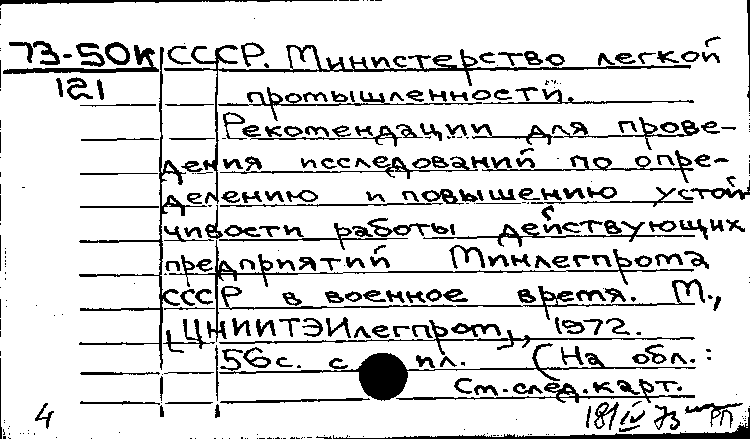 73-50к СССР. Министерство легкой
121 промышленности.
Рекомендации для прове-
дения исследований по опре-
делению и повышению устой-
чивости работы действующих
предприятий Минлегпрома
СССР в военное время. М.,
[ЦНИИТЭИлегпром], 1972.
56с. с ил. (На обл.:
См.след.карт.
4 181 IV 73 РП